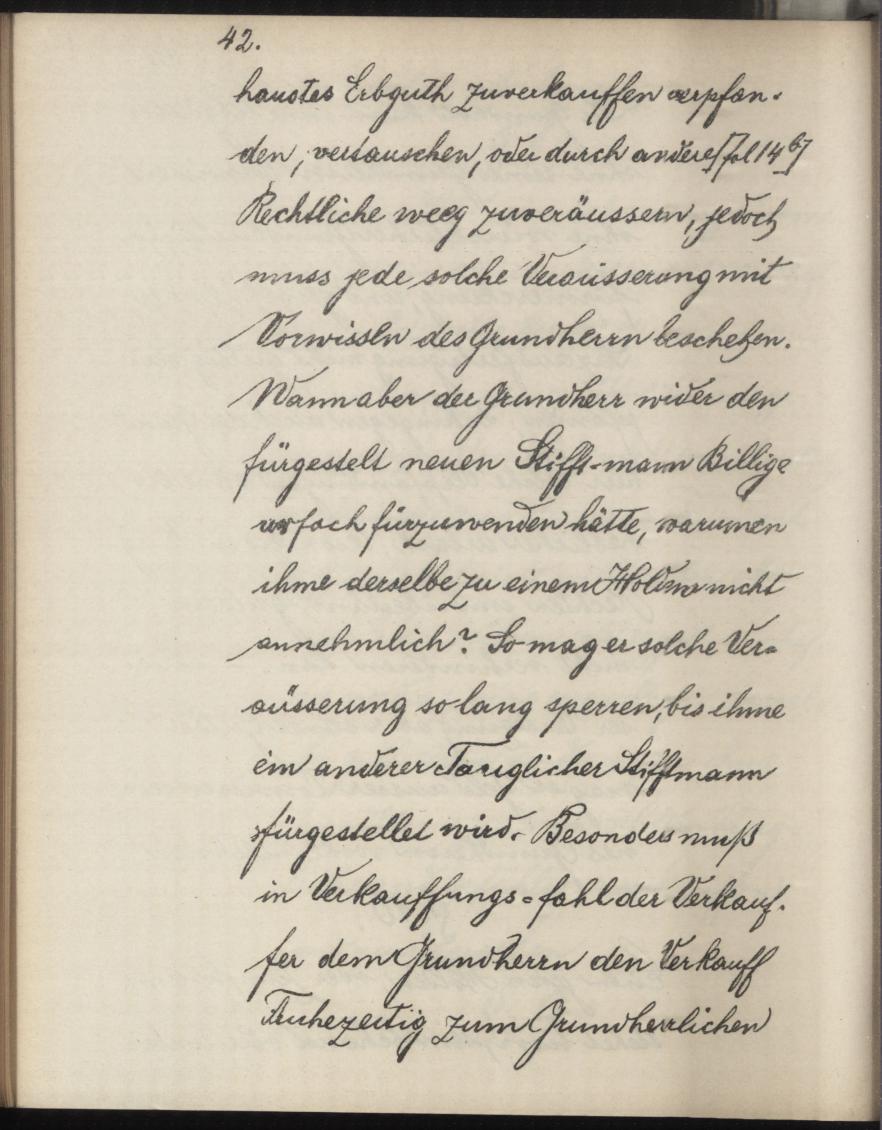 42.
haustes Erbguth zuverkauffen verpfän-
den, vertauschen, oder durch andere [fol 14 b]
Rechtliche weeg zuveräussern, jedoch
muss jede solche Veräusserung mit
Vorwissen des Grundherrn beschehen.
Wann aber der Grundherr wider den
fürgestelt neuen Stifft-mann Billige
ursach fürzuwenden hätte, warumen
ihme derselbe zu einem Holden nicht
annehmlich? So mag er solche Ver=
äusserung so lang sperren, bis ihme
ein anderer Tauglicher Stifftmann
fürgestellet wird. Besonders muß
in Verkauffungs=fahl der Verkauf-
fer dem Grundherrn den Verkauff
Fruhezeitig zum Grundherrlichen